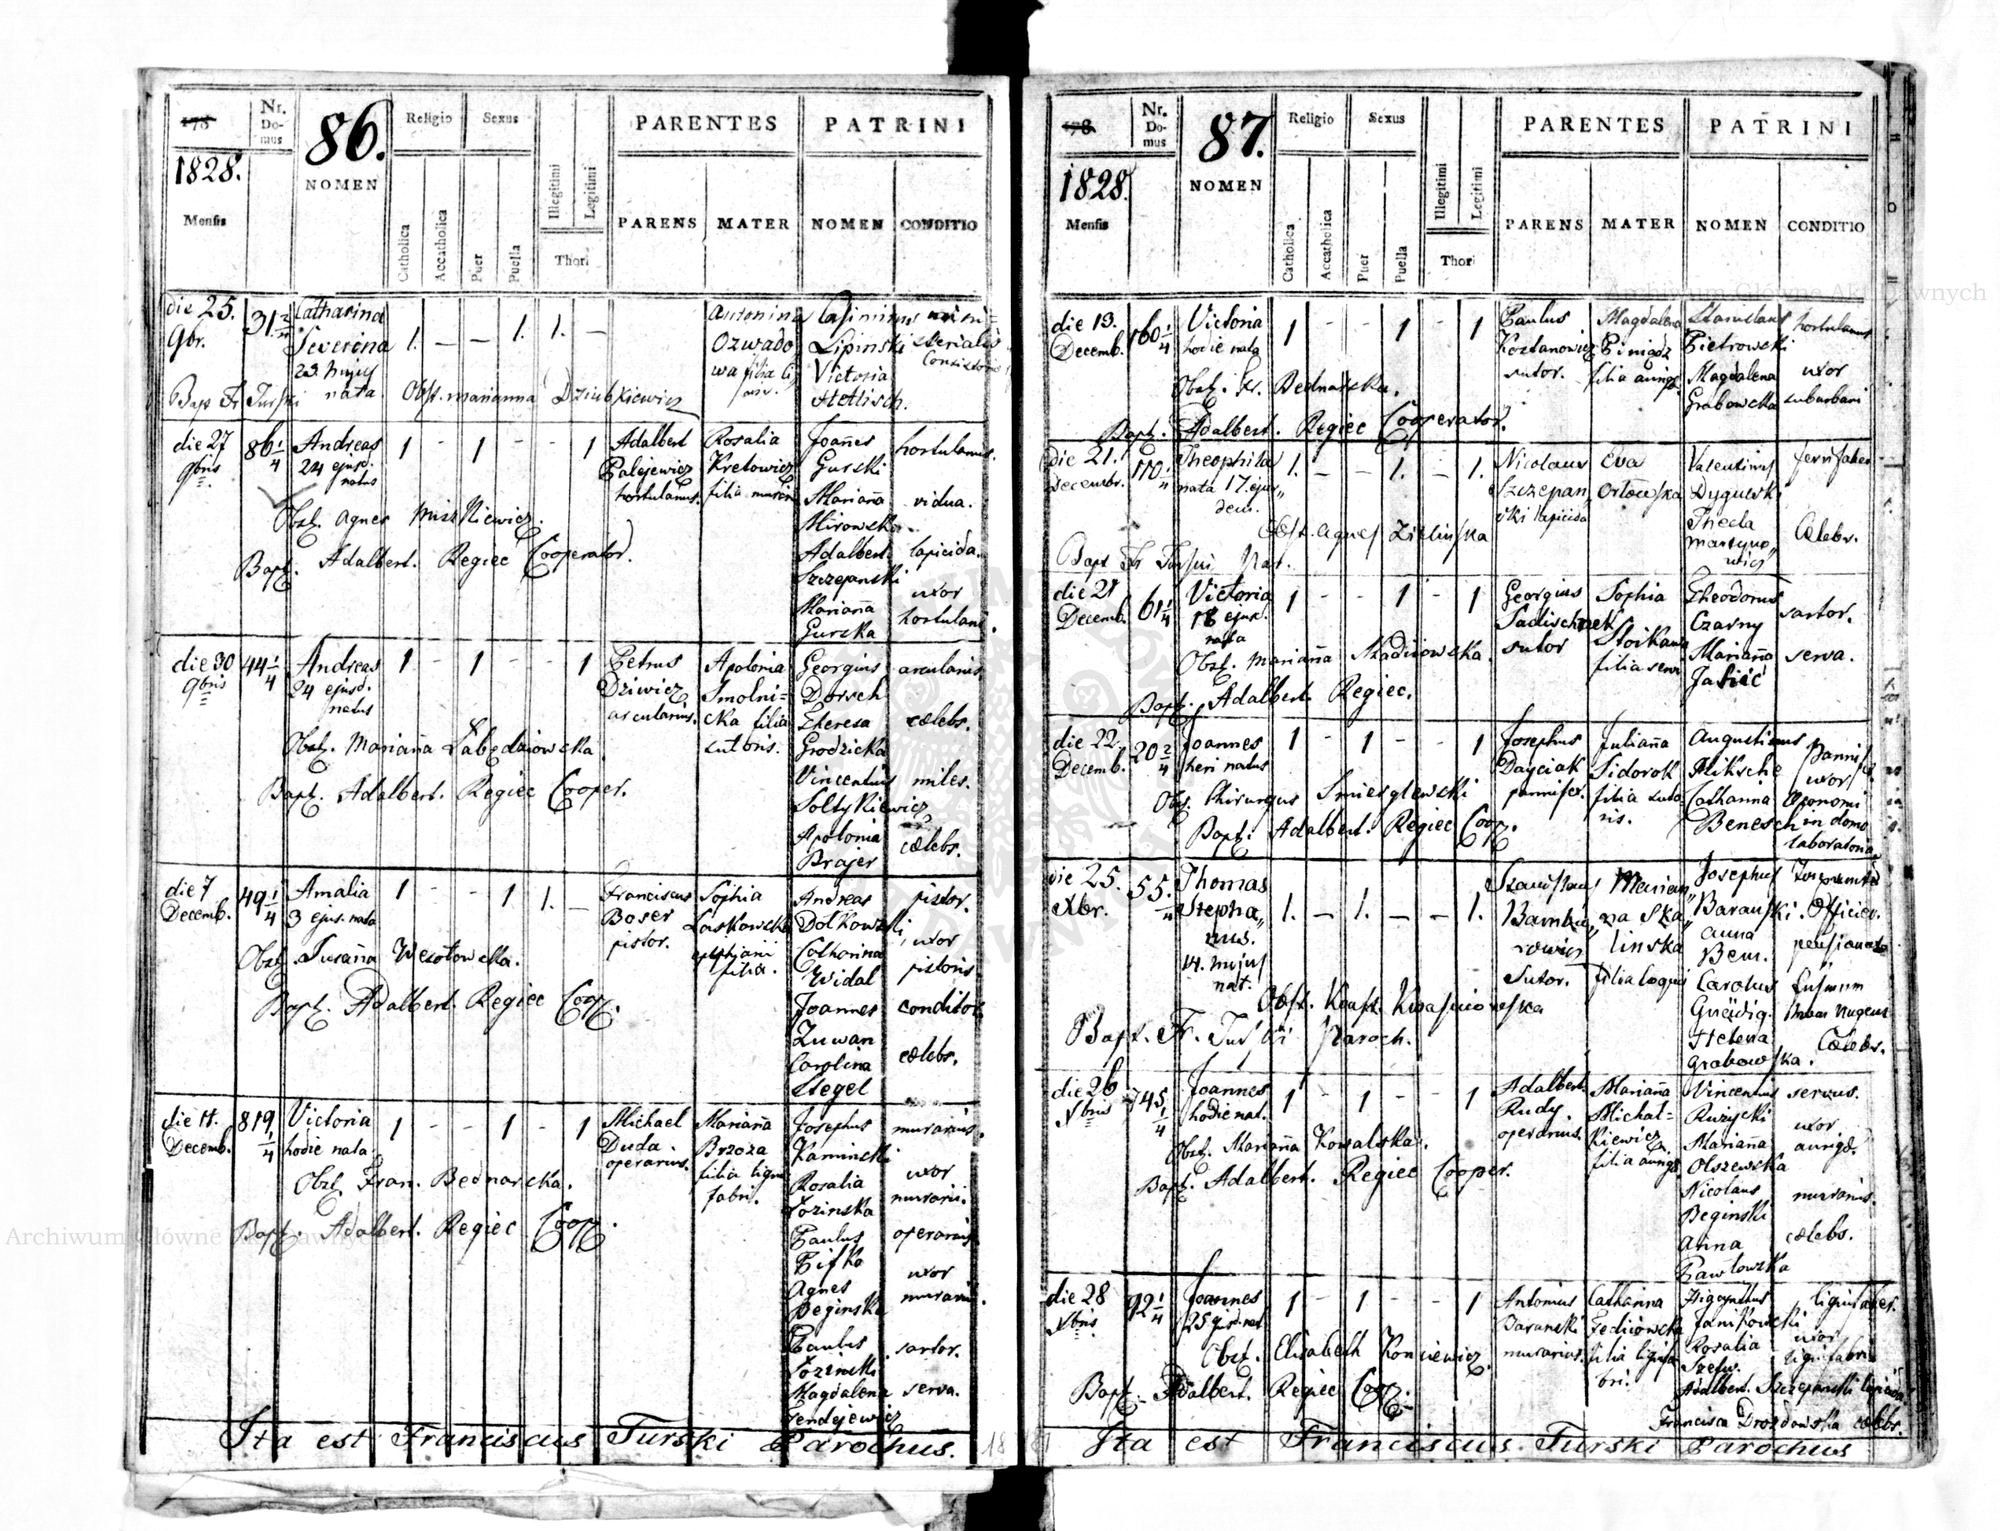 178
Nr. Domus
86.
Religio
Sexus
PARENTES
PATRINI
1828.
NOMEN
Mensis
Catholica
Accatholica
Puer
Puella
Illegitimi
Legitimi
Thori
PARENS
MATER
NOMEN
CONDITIO
die 25.
9br.
31 2/4
Catharina
Severina
23. hujus
nata
1. – – 1. 1. –
Antonina
Ozwado
wa filia
Casimirus
Lipinski
Victoria
Hettisch.
Consistorii
Bap Fr Turski
Obst. marianna Dziubkiewicz
die 27
9bris
86 1/4
Andreas
24 ejusd.
natus
1 - 1 - - 1
Adalbert
Palejewicz
hortulanus.
Rosalia
Kretowicz
filia murar
Joañes
Gurski
Mariaña
Mirowska.
Adalbert.
Szczepanski
Mariaña
Gurska
hortulanus.
vidua.
lapicida.
uxor
hortulani.
Obst. Agnes Miszkiewicz.
Bapt. Adalbert. Regiec Cooperator.
die 30
9bris
44 1/4
Andreas
24 ejusd.
natus
1 - 1 - - 1
Petrus
Dziwicz
arcularius.
Apolonia
Smolni=
cka filia
sutoris.
Georgius
Dorsch
Theresa
Grodzicka
Vincentius
Soltykiewicz
Apolonia
Brajer
arcularius
cælebs.
miles.
cælebs.
Obst. Mariaña Łabędziowska.
Bapt. Adalbert. Regiec Cooper.
die 7
Decemb.
49 1/4
Amalia
3 ejus. nata
1 - - 1 1. –
Franciscus
Boser
pistor.
Sophia
Laskowska
filia.
Andreas
Dołkowski
Catharina
Widal
Joannes
Zuwan
Carolina
Stegel
pistor.
uxor
pistoris
conditor
cælebs.
Obst. Susaña Wesołowska.
Bapt. Adalbert. Regiec Coop.
die 11.
Decemb.
819 1/4
Victoria
hodie nata
1 - - 1 - 1
Michael
Duda.
operarius.
Mariaña
Brzoza
filia ligni
fabri.
Josephus
Kaminski
Rosalia
Łozinska
Paulus
Pifka
Agnes
Beginska
Paulus
Łozinski
Magdalena
Jendejewicz
murarius.
uxor
murarii.
operarius
uxor
murarii.
sartor.
serva.
Obst. Fran. Bednarska.
Bapt. Adalbert. Regiec Coop.
Ita est Franciscus Turski Parochus.
178
Nr. Domus
87.
Religio
Sexus
PARENTES
PATRINI
1828.
NOMEN
Mensis
Catholica
Accatholica
Puer
Puella
Illegitimi
Legitimi
Thori
PARENS
MATER
NOMEN
CONDITIO
die 13.
Decemb.
160 1/4
Victoria
hodie nata
1 - - 1 - 1
Paulus
Kozłanowicz
sutor.
Magdalena
Piniądz
filia aurigæ
Stanislaus
Pietrowski
Magdalena
Grabowska
hortulanus
uxor
suburbani
Obst. Fr. Bednarska.
Bapt. Adalbert. Regiec Cooperator.
die 21.
Decembr.
170 1/4
Theophila
nata 17. ejus„
dem.
1. – – 1. – 1.
Nicolaus
Szczepan
ski lapicida
Eva
Orłowska
Valentinus
Dygulski
Thecla
Martyno„
wicz
ferrifaber
Cælebs.
Obst. Agnes Zielinska
Bapt Fr Turski Par.
die 21
Decemb.
61 1/4
Victoria
18 ejus.
nata
1 - - 1 - 1
Georgius
Sadischnek
sutor
Sophia
Stoikaus
filia servi
Theodorus
Czarny
Mariaña
Jasiec
sartor.
serva.
Obst. Mariaña
Bapt. Adalbert. Regiec.
die 22.
Decemb.
20 2/4
Joannes
heri natus
1 - 1 - - 1
Josephus
Dayciak
pannifex.
Juliaña
Sidorok
filia suto
ris.
Augustinus
Miksche
Catharina
Benesch
Pannifex.
uxor
Oeconomi
in domo
laboratoria
Obst. Chirurgus Smieszlewski
Bapt. Adalbert. Regiec Coop.
die 25.
Xbr.
55. 1/4
Thomas
Stepha„
nus.
14. hujus
nat.
1. – 1. – – 1.
Stanislaus
Sutor.
Marian„
na Ska„
linska
Josephus
Baranski.
anna
Bem.
Carolus
Helena
Grabowska.
Officier.
Cælebs.
Bapt. Fr. Turski Paroch.
die 26
Xbris
745 1/4
Joannes
hodie nat.
1 - 1 - - 1
Adalbert.
Rudy.
operarius.
Mariaña
Michał=
kiewicz
filia aurigæ
Vincentius
Ruzycki
Mariaña
Olszewska
Nicolaus
Beginski
Anna
Pawłowska
servus.
uxor
aurigæ.
murarius.
cælebs.
Obst. Mariaña Kowalska.
Bapt. Adalbert. Regiec Cooper.
die 28
Xbris
92 1/4
Joannes
25 ejusd. nat.
1 - 1 - - 1
Antonius
Baranski
murarius.
Catharina
Fediiowska
filia lignifa
bri.
Higynthus
Janikowski
Rosalia
Szefer.
Adalbert. Szczepanski lapicida
Francisca Drozdowska cælebs.
lignifaber.
uxor
lignifabri
Obst. Elisabeth Konciewicz.
Bapt. Adalbert. Regiec Coop.
Ita est Franciscus Turski Parochus
Archiwum Główne Akt Dawnych
Archiwum Główne Akt Dawnych